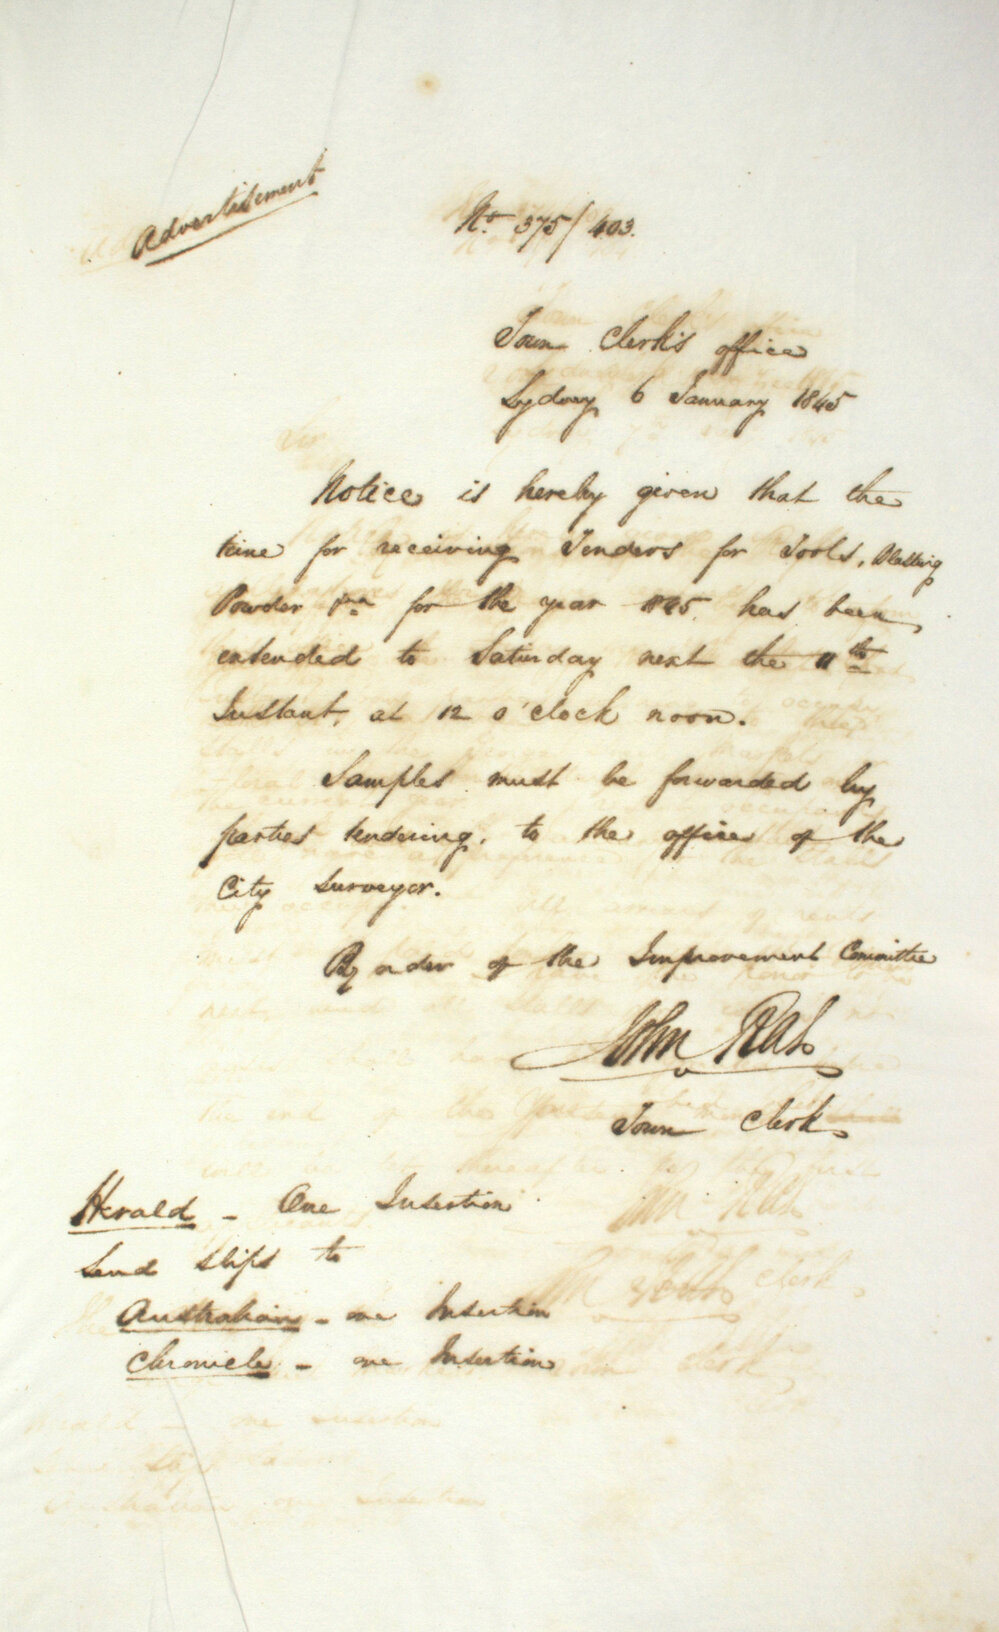 Advertisement
No. 375/403.
Town Clerk's office
Sydney 6 January 1845
Notice is hereby given that the
time for receiving Tenders for Tools, Blasting
Powder &ca for the year 1845 has been
extended to Saturday next the 11th
Instant, at 12 o'clock noon.
Samples must be forwarded by
parties tendering, to the office of the
City Surveyor.
By order of the Improvement Committee
John Rae
Town Clerk
Herald - One Insertion
Send slips to
Australian - one Insertion
Chronicle - one Insertion